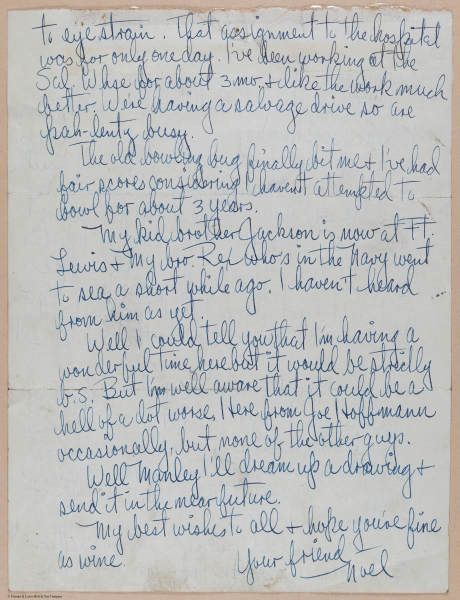 to eye strain. That assignment to the hospital
was for only one day. I've been working at the
Sal. Whse for about 3 mo. + like the work much
better. We're having a salvage drive so are
pah-lenty busy.
The old bowling bug finally bit me + I've had
fair scores considering I haven't attempted to
bowl for about 3 years.
My kid brother Jackson is now at Ft.
Lewis + my bro. Rex who's in the Navy went
to sea a short while ago. I haven't heard
from him as yet.
Well I could tell you that I'm having a
wonderful time here but it would be strictly
b.s. But I'm well aware that it could be a
hell of a lot worse. Here from Joe Hoffmann
occasionally, but none of the other guys.
Well Manley I'll dream up a drawing +
send it in the near future.
My best wishes to all + hope you're fine
as wine.
Your friend
Noel